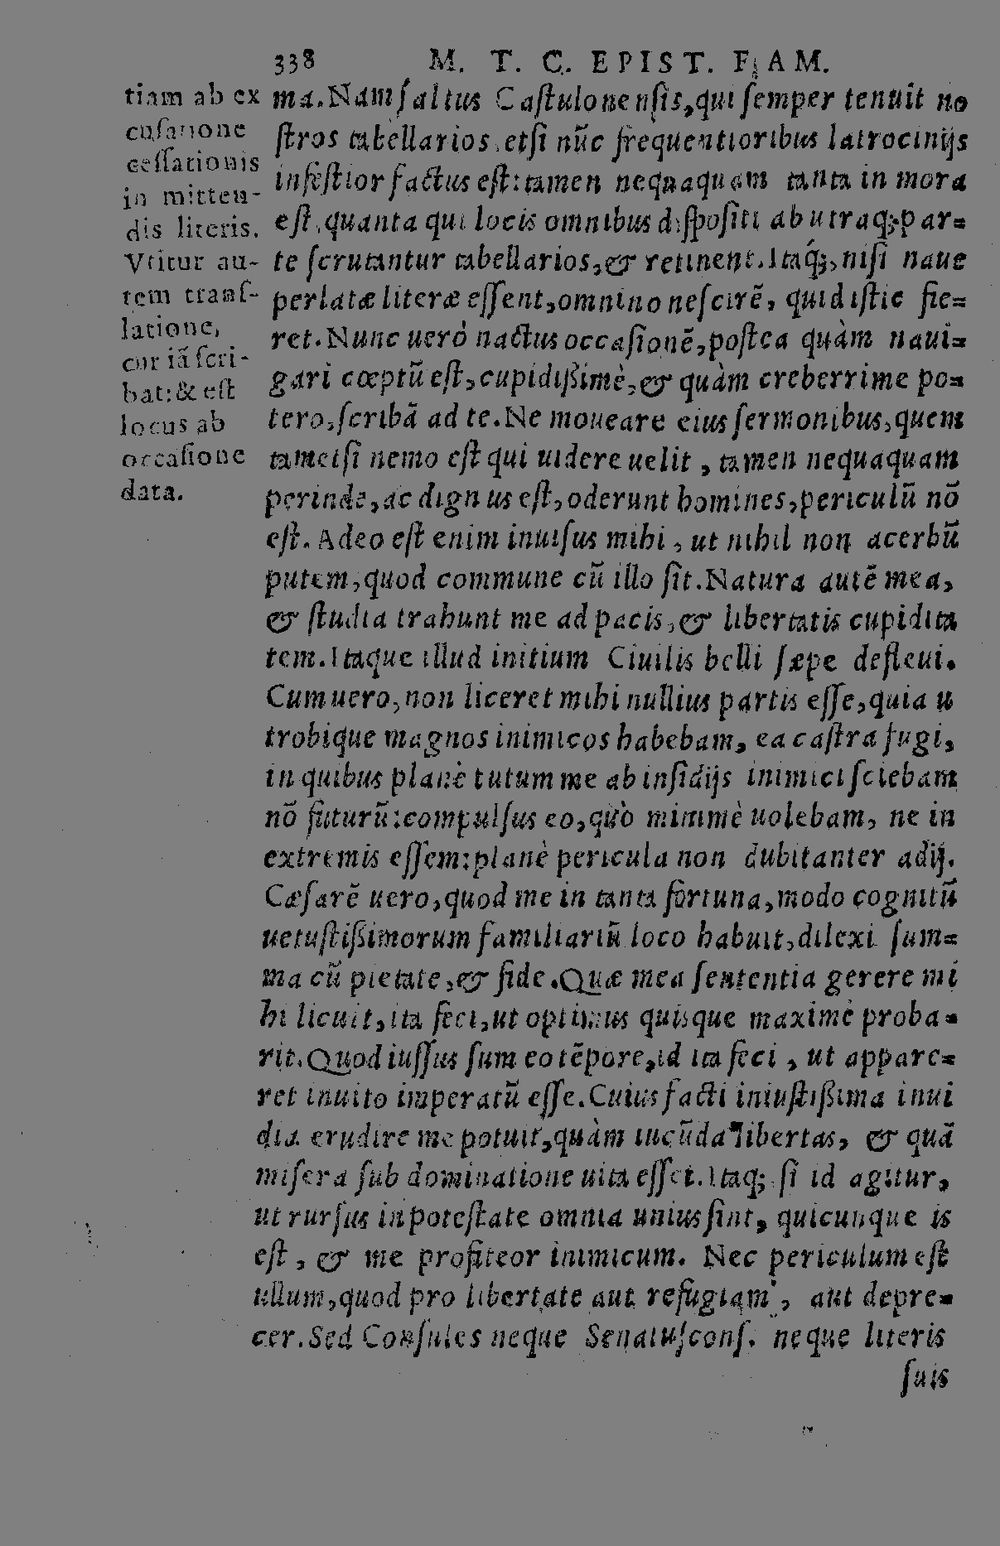 338 M. T. C. EPIST. FAM.
tiam ab ex
cusatione
cessationis
in mitten-
dis literis.
Vtitur au-
tem transſ-
latione,
cur iã scri-
bat: & est
locus ab
occasione
data.
ma. Nam ſaltus Caſtulonenſis, qui ſemper tenuit no
ſtros tabellarios, etſi nũc frequentioribus latrocinijs
infeſtior factus eſt: tamen nequaquam tanta in mora
eſt, quanta qui locis omnibus diſpoſiti ab utraq; par=
te ſcrutantur tabellarios, & retinent. Itaq́;, niſi naue
perlatæ literæ eſſent, omnino neſcirẽ, quid iſtic fie=
ret. Nunc uerò nactus occaſionẽ, poſtea quàm naui=
gari cœptũ eſt, cupidißimè, & quàm creberrime po=
tero, ſcribã ad te. Ne moueare eius ſermonibus, quem
tametſi nemo eſt qui uidere uelit, tamen nequaquam
perinde, ac dignus eſt, oderunt homines, periculũ nõ
eſt. Adeo eſt enim inuiſus mihi, ut nihil non acerbũ
putem, quod commune cũ illo ſit. Natura autẽ mea,
& ſtudia trahunt me ad pacis, & libertatis cupidita
tem. Itaque illud initium Ciuilis belli ſæpe defleui.
Cum uero, non liceret mihi nullius partis eſſe, quia u
trobique magnos inimicos habebam, ea caſtra fugi,
in quibus planè tutum me ab inſidijs inimici ſciebam
nõ futurũ: compulſus eo, quò minimè uolebam, ne in
extremis eſſem: planè pericula non dubitanter adij.
Cæſarẽ uero, quod me in tanta fortuna, modo cognitũ
uetuſtißimorum familiariũ loco habuit, dilexi ſum=
ma cũ pietate, & fide. Quæ mea ſententia gerere mi
hi licuit, ita feci, ut optimus quiſque maximè proba=
rit. Quod iuſſus ſum eo tẽpore, id ita feci, ut appare=
ret inuito imperatũ eſſe. Cuius facti iniuſtißima inui
dia erudire me potuit, quàm iucũda libertas, & quã
miſera ſub dominatione uita eſſet. Itaq; ſi id agitur,
ut rurſus in poteſtate omnia unius ſint, quicunque is
eſt, & me profiteor inimicum. Nec periculum eſt
ullum, quod pro libertate aut refugiam, aut depre=
cer. Sed Conſules neque Senatuſconſ. neque literis
ſuis